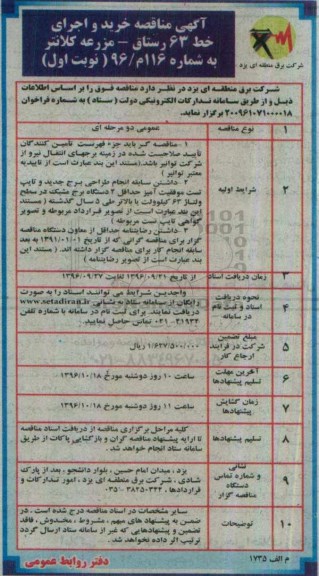 آگهی مناقصه خرید و اجرای
خط ۶۳ رستاق - مزرعه کلانتر
به شماره ۱۱۶م/۹۶ (نوبت اول)
شرکت برق منطقه ای یزد
شرکت برق منطقه ای یزد در نظر دارد مناقصه فوق را بر اساس اطلاعات
ذیل و از طریق سامانه تدارکات الکترونیکی دولت (ستاد) به شماره فراخوان
۲۰۰۹۶۱۰۷۱۰۰۰۰۱۸ برگزار نماید.
۱ نوع مناقصه عمومی دو مرحله ای
۲ شرایط اولیه
۱- مناقصه گر باید جزء فهرست تأمین کنندگان
تأیید صلاحیت شده در زمینه برجهای انتقال نیرو از
شرکت توانیر باشد. (مستند این بند عبارت است از تاییدیه
معتبر توانیر)
۲- داشتن سابقه انجام طراحی برج جدید و تایپ
تست موفقیت آمیز حداقل ۲ دستگاه برج مشبک در سطح
ولتاژ ۶۳ کیلوولت یا بالاتر طی ۵ سال گذشته (مستند
این بند عبارت است از تصویر قرارداد مربوطه و تصویر
گواهی تایپ تست مربوطه)
۳- داشتن رضایتنامه حداقل از معاون دستگاه مناقصه
گزار برای مناقصه گرانی که از تاریخ ۱۳۹۱/۰۱/۰۱ به بعد
سابقه انجام کار برای مناقصه گزار داشته اند. (مستند این
بند عبارت است از تصویر رضایتنامه)
۳ زمان دریافت اسناد از تاریخ ۱۳۹۶/۰۹/۲۱ لغایت ۱۳۹۶/۰۹/۲۷
۴ نحوه دریافت اسناد و ثبت نام در سامانه
واجدین شرایط می توانند اسناد را به صورت
رایگان از سامانه ستاد به نشانی www.setadiran.ir
دریافت نمایند. برای ثبت نام در سامانه با شماره تلفن
۴۱۹۳۴-۰۲۱ تماس حاصل نمایید.
۵ مبلغ تضمین شرکت در فرایند ارجاع کار ۱/۶۲۷/۵۰۰/۰۰۰ ریال
۶ آخرین مهلت تسلیم پیشنهادها ساعت ۱۰ روز دوشنبه مورخ ۱۳۹۶/۱۰/۱۸
۷ زمان گشایش پیشنهادها ساعت ۱۱ روز دوشنبه مورخ ۱۳۹۶/۱۰/۱۸
۸ تسلیم پیشنهادها
کلیه مراحل برگزاری مناقصه از دریافت اسناد مناقصه
تا ارایه پیشنهاد مناقصه گران و بازگشایی پاکات از طریق
سامانه ستاد انجام خواهد شد.
۹ نشانی و شماره تماس دستگاه مناقصه گزار
یزد، میدان امام حسین، بلوار دانشجو، بعد از پارک
شادی، شرکت برق منطقه ای یزد، امور تدارکات و
قراردادها، ۳۸۲۵۰۳۴۲-۰۳۵
۱۰ توضیحات
سایر مشخصات در اسناد مناقصه درج شده است. در
ضمن به پیشنهاد های مبهم، مشروط، مخدوش، فاقد
تضمین و پیشنهادهایی که غیر از سامانه ستاد ارسال گردد
ترتیب اثر داده نخواهد شد.
م الف ۱۷۳۵
دفتر روابط عمومی